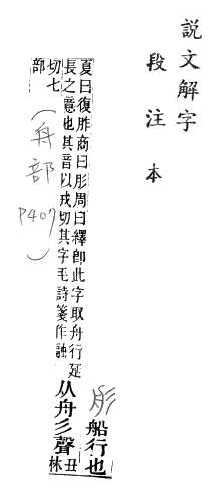 說文解字
段注本
彤
船行也
夏曰復胙商曰肜周曰繹卽此字取舟行延
長之意也其音以戎切其字毛詩箋作融
从舟彡聲
丑
林
切七
部
(舟部 P407)